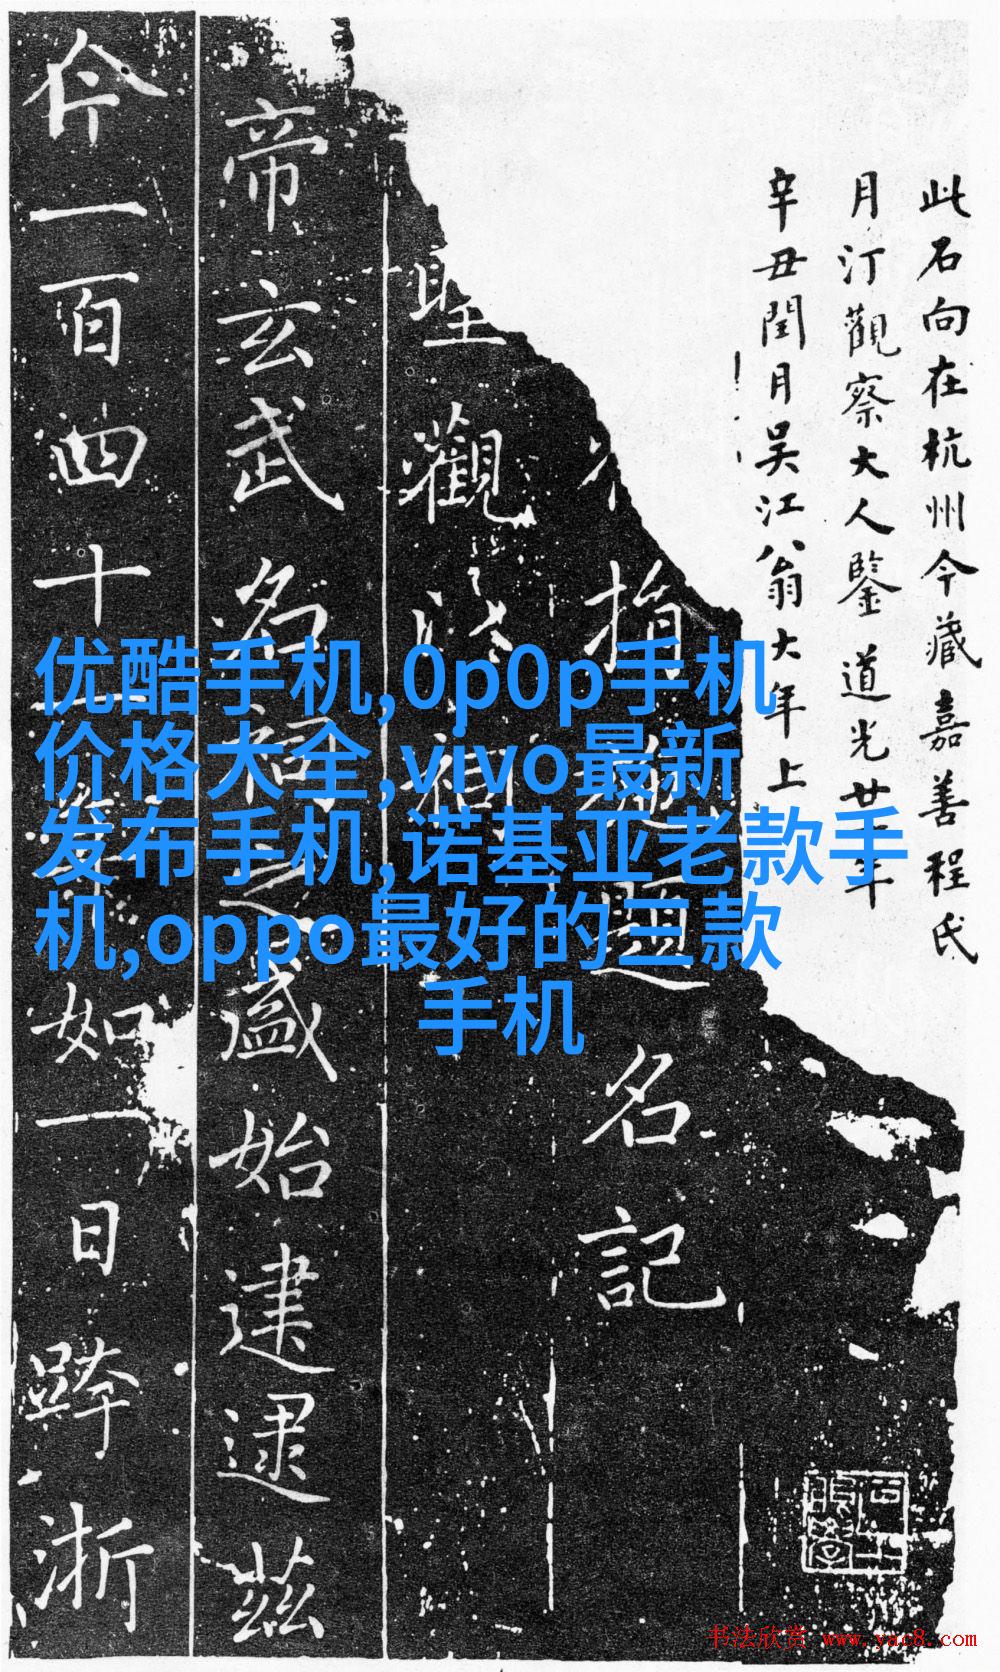 此石向在杭州今藏嘉善程氏
月汀觀察大人鑒 道光廿年
辛丑閏月吴江翁大年上
指題名記
聖觀
帝玄武名祠之盛始建逮茲
仐一百四十一年如一日跨浙
优酷手机,0p0p手机
价格大全,vivo最新
发布手机,诺基亚老款手
机,oppo最好的三款
手机
书法欣赏 www.yac8.com